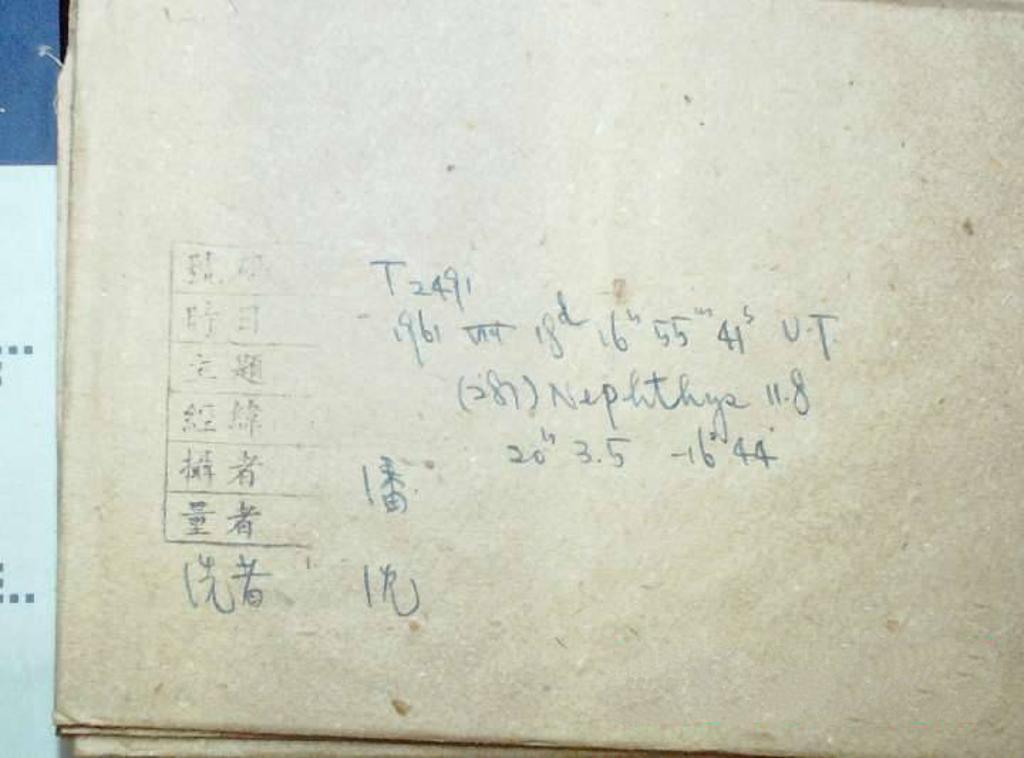 號碼 T2491
時日 1961 VIII 18d 16h 55m 41s U.T.
主題 (287) Nephthys 11.8
經緯 20h 3.5 -16°44'
攝者 潘
量者
洗者 沈